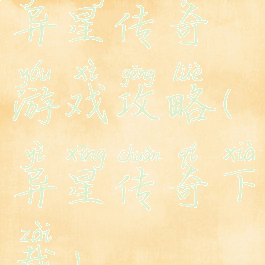 异星传奇
yóu xì gōng lüè
游戏攻略(
yì xīng chuán qí xià
异星传奇下
zǎi
载)